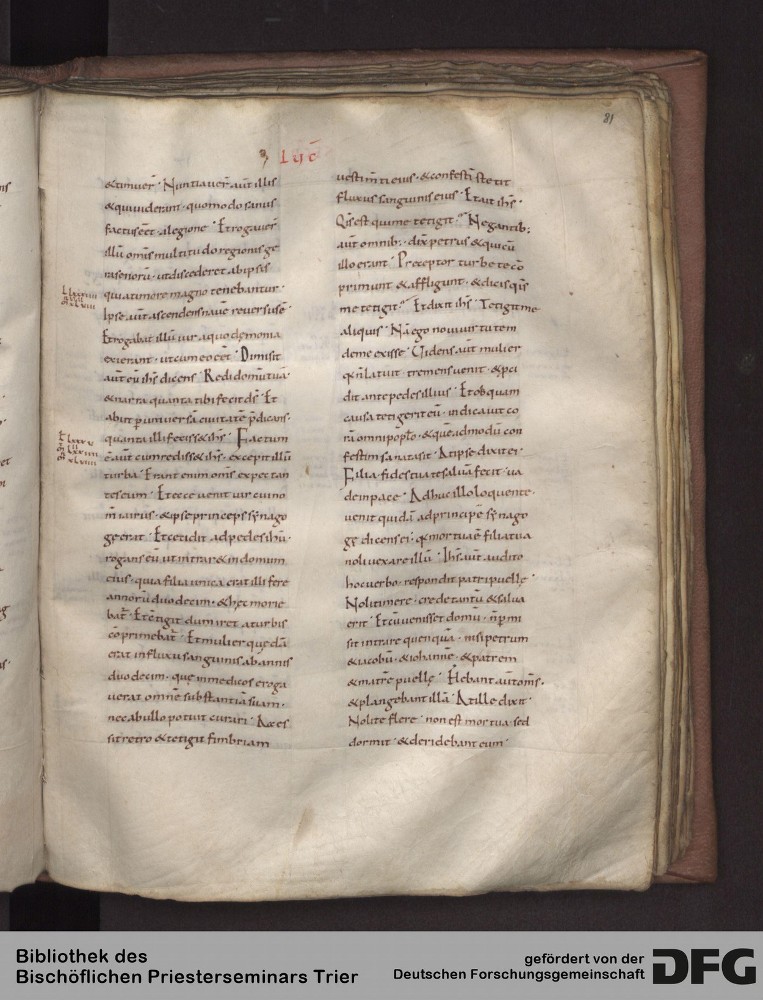 81
LUC̄
&timuer̄· Nuntiauer̄ aūt illis
&quiuiderant· quomodo sanus
factus eēt· a legione· Et rogauer̄
illū omīs multitudo regionis ge
rasenorū· ut discederet ab ipsis
quia timore magno tenebantur·
Ipse aūt ascendens nauē reuersus ē·
Et rogabat illū uir a quo dęmonia
exierant· ut cum eo eēt· Dimisit
aūt eū ihs̄ dicens· Redi domū tuā·
& narra quanta tibi fecit ds̄· Et
abiit p uniuersā ciuitatē p̄dicans·
quanta illi feciss& ihs̄· Factum
ē aūt cum rediss& ihs̄· excepit illū
turba· Erant enim omīs expectan
tes eum· Et ecce uenit uir cui no
m̄ iairus· & ipse princeps synago
gę erat· Et cecidit ad pedes ihū·
rogans eū ut intrar& in domum
eius· quia filia unica erat illi fere
annorū duodecim· & hęc morie
bat̄· Et c̄tigit dum iret a turbis
cōprimebat̄· Et mulier quędā
erat in fluxu sanguinis ab annis
duodecim· quę in medicos eroga
uerat omnē substantiā suam·
nec ab ullo potuit curari· Acces
sit retro & tetigit fimbriam
uestim̄ti eius· & confestī stetit
fluxus sanguinis eius· Et ait ihs̄·
Qis est qui me tetigit· Negantib;
aūt omnib;· dix̄ petrus & qui cū
illo erant· Preceptor turbe te cō
primunt & affligunt· & dicis qis
me tetigit· Et dixit ihs̄· Tetigit me
aliquis· Nā ego noui uirtutem
de me exisse· Uidens aūt mulier
q̄ n̄ latuit· tremens uenit· & p̄ci
dit ante pedes illius· Et ob quam
causa tetigerit eū· indicauit co
rā omni pop̄lo· & quēadmodū con
festim sanata sit· At ipse dixit ei·
Filia· fides tua te saluā fecit· ua
de in pace· Adhuc illo loquente·
uenit quidā ad principē synago
gę dicens ei· q̄ mortua ē filia tua
noli uexare illū· Ihs̄ aūt audito
hoc uerbo· respondit patri puellę·
Noli timere· crede tantū & salua
erit· Et cū uenisset domū· n̄ p̄mi
sit intrare quenquā· nisi petrum
& iacobū· & iohannē· & patrem
& matrē puellę· Flebant aūt omīs·
& plangebant illā· At ille dixit·
Nolite flere· non est mortua· sed
dormit· & deridebant eum·
Bibliothek des
Bischöflichen Priesterseminars Trier
gefördert von der
Deutschen Forschungsgemeinschaft
DFG